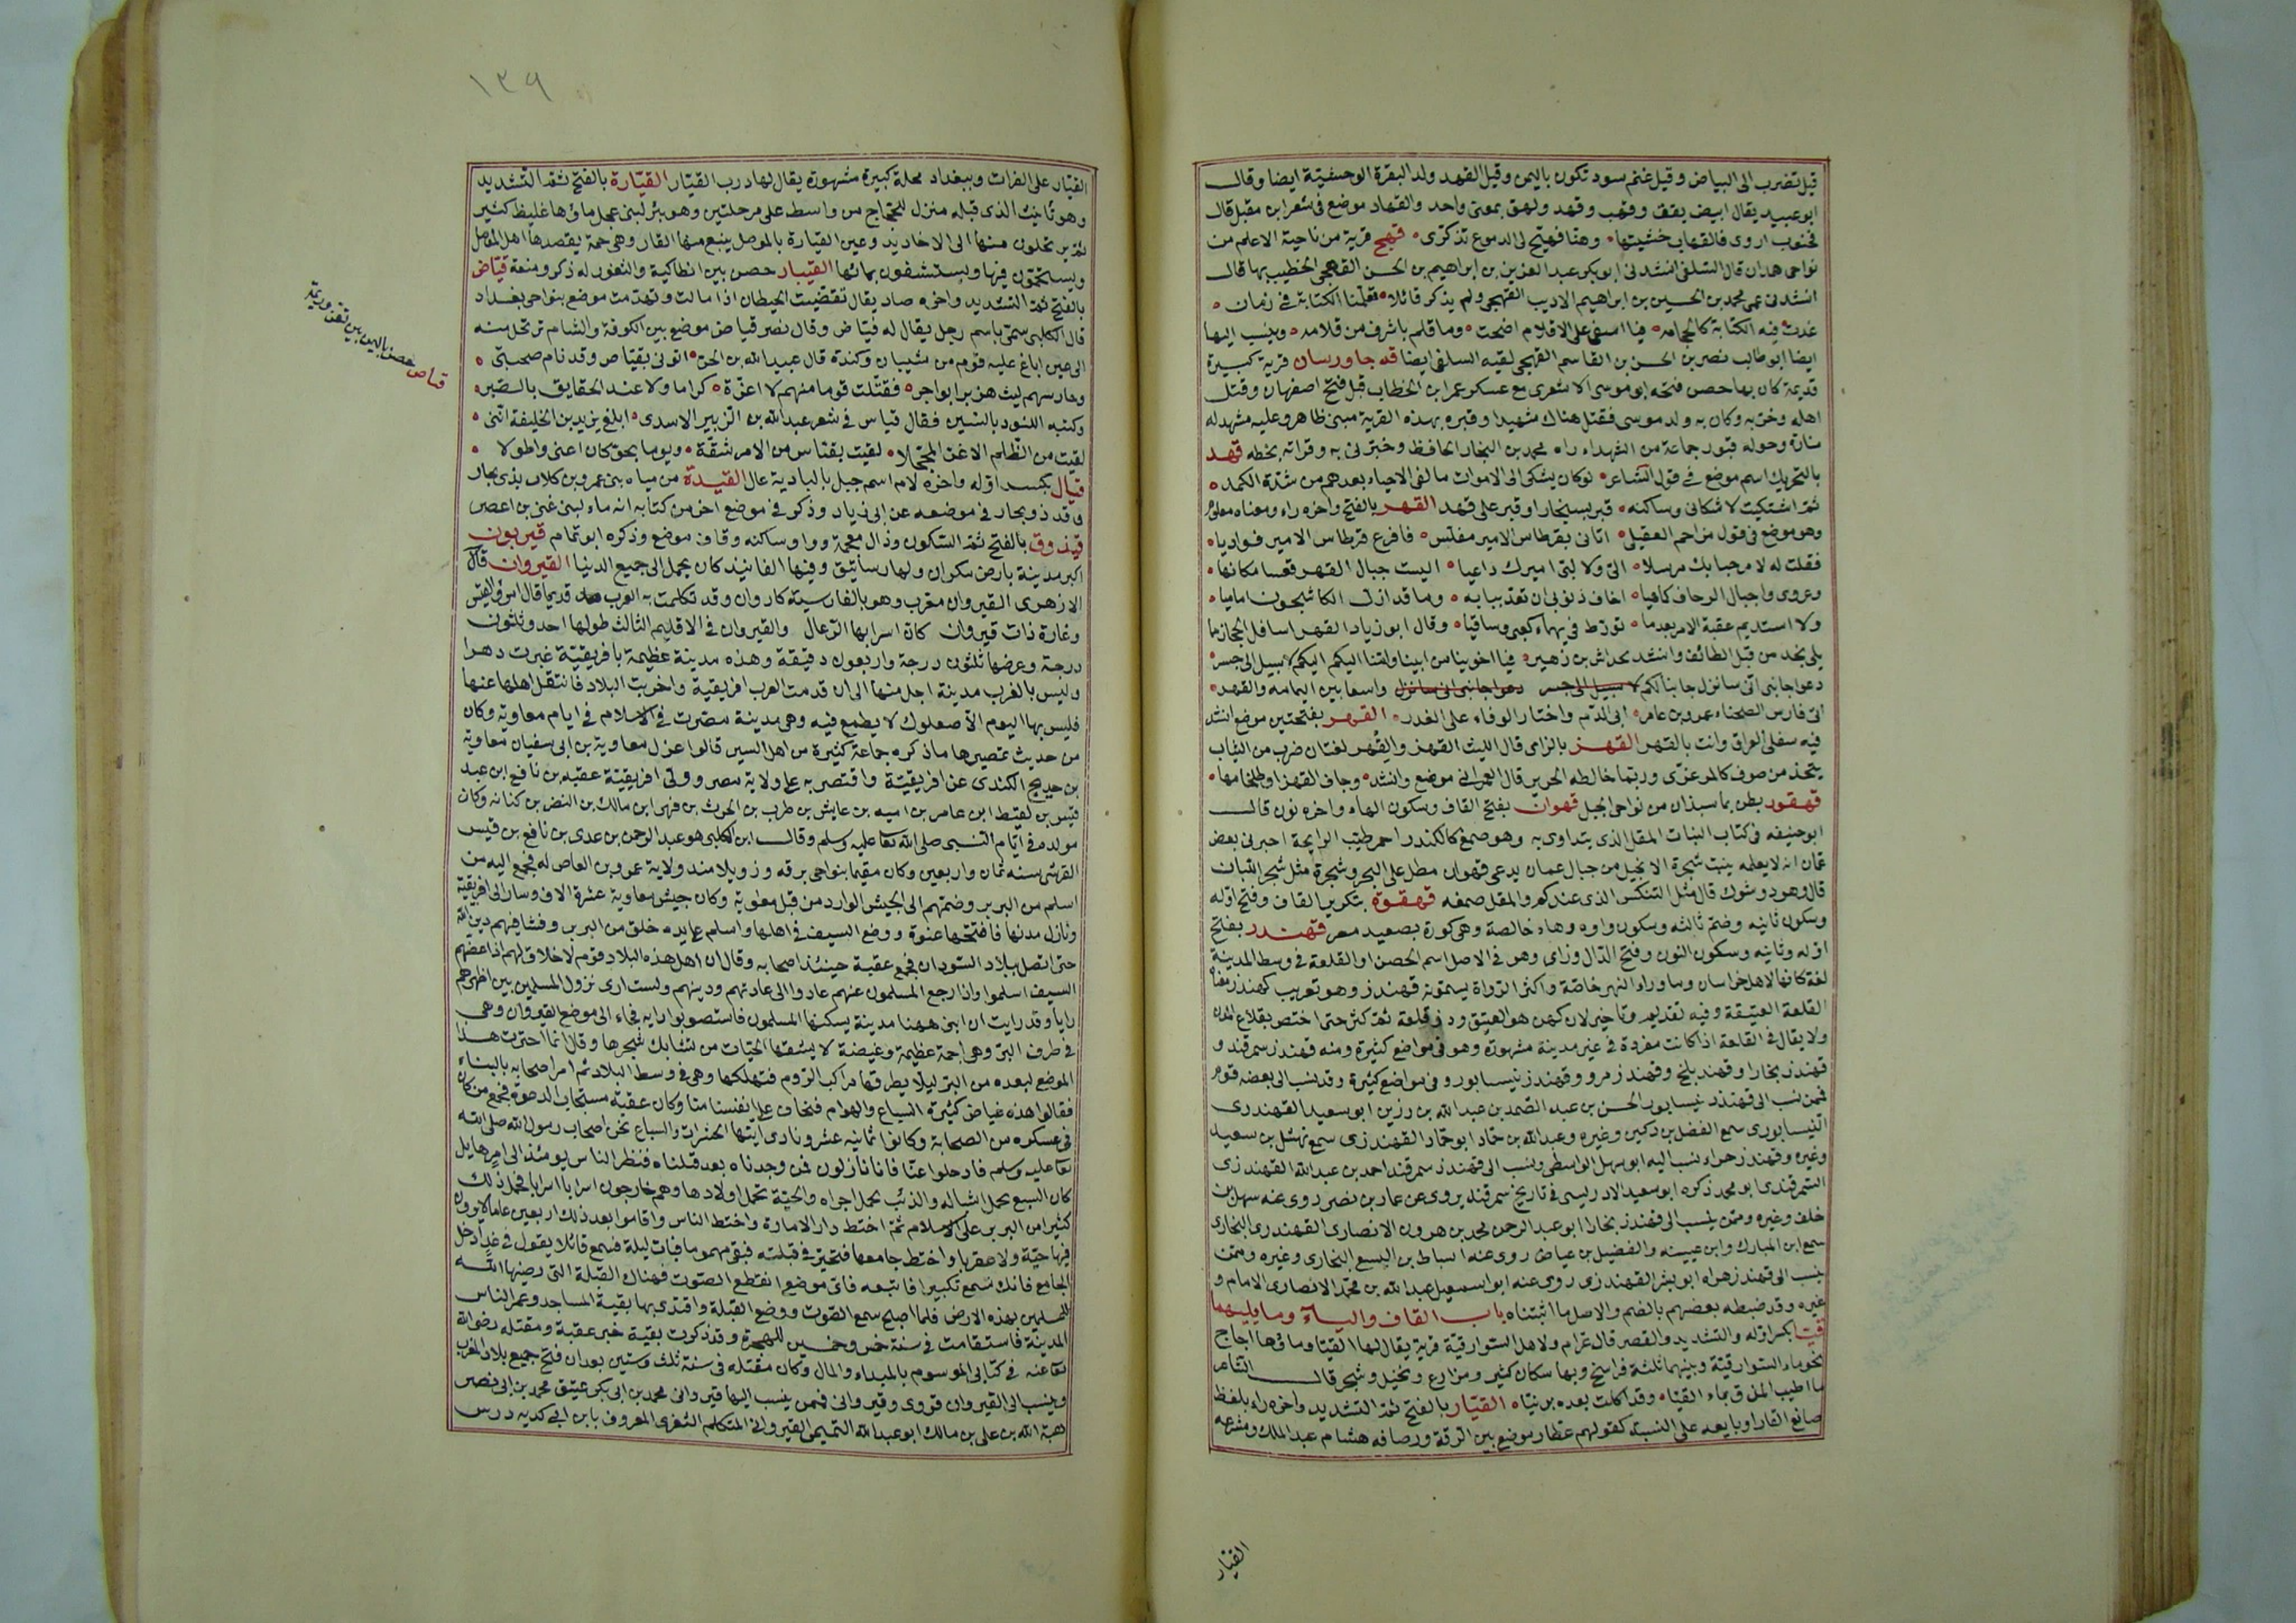 قيل تضرب الى البياض وقيل غنم سود تكون باليمن وقيل القهد ولد البقرة الوحشية ايضا وقال
ابو عبيد يقال ابيض يقق وقهب وقهد ولهق بمعنى واحد والقهاد موضع في شعر ابن مقبل قال
فجنوب اروى فالقهاب خشيتها وهنا فهيج لى الدموع تذكرى قهج قرية من ناحية الاعلم من
نواحى همدان قال السلفى انشدنى ابو بكر عبد العزيز بن ابراهيم بن الحسن القهجى الخطيب بها قال
انشدنى عمى محمد بن الحسين بن ابراهيم الاديب القهجى ولم يذكر قائلا تعلمنا الكتابة في زمان
غدت فيه الكتابة كالحجامه فيا اسفى على الاقلام اضحت وما قلم باشرف من قلامه وينسب اليها
ايضا ابو طالب نصر بن الحسن بن القاسم القهجى لقيه السلفى ايضا قه جاورسان قرية كبيرة
قديمة كان بها حصن فتحه ابو موسى الاشعرى مع عسكر عمر ابن الخطاب قبل فتح اصفهان وقتل
اهله وخربه وكان به ولد موسى فقتل هناك شهيدا وقبره بهذه القرية مبنى ظاهر وعليه مشهد له
منارة وحوله قبور جماعة من الشهداء راه محمد بن النجار الحافظ وخبرنى به وقراته بخطه قهد
بالتحريك اسم موضع في قول الشاعر لو كان يشكى الى الاموات ما لقى الاحياء بعدهم من شدة الكمد
ثم اشتكيت لاشكانى وساكنه قبر بسنجار او قبر على قهد القهر بالفتح واخره راء ومعناه معلوم
وهو موضع في قول مزاحم العقيلى اتانى بقرطاس الامير مفلس فافزع قرطاس الامير فواديا
فقلت له لا مرحبا بك مرسلا الى ولا لبى اميرك داعيا اليست جبال القهر قعسا مكانها
وعروى واجبال الوحاف كما هيا اخاف ذنوبى ان تعد ببابه وما قد ازل الكاشحون اماميا
ولا استديم عقبة الامر بعد ما تورط في يهماء كعبى وساقيا وقال ابو زياد القهر اسافل الحجاز مما
يلى نجد من قبل الطائف وانشد لخداش بن زهير فيا اخوينا من ابينا وامنا اليكم اليكم لا سبيل الى جسر
دعوا جانبى انى سانزل جانبا لكم لا سبيل الى جسر دعوا جانبى انى سانزل واسعا بين اليمامه والقهر
ابى فارس الضحياء عمرو بن عامر ابى الذم واختار الوفاء على الغدر القهر بفتحتين موضع انشد
فيه سفلى العراق وانت بالقهر القهز بالزاى قال الليث القهز والقهز لغتان ضرب من الثياب
يتخذ من صوف كالمرعزى وربما خالطه الحرير قال العمرانى موضع وانشد وحاف القهز او طلخامها
قهقور بطن بماسبذان من نواحى الجبل قهوان بفتح القاف وسكون الهاء واخره نون قال
ابو حنيفه في كتاب النبات المقل الذى يتداوى به وهو صمغ كالكندر احمر طيب الرايحة اخبرنى بعض
عمان انه لا يعلمه ينبت شجرة الا بجبل من جبال عمان يدعى قهوان مطل على البحر وشجرة مثل شجر اللبان
قال وهو ذو شوك قال مثل التنكس الذى عندكم والمقل صمغه قهقوه بتكرير القاف وفتح اوله
وسكون ثانيه وضم ثالثه وسكون واوه وهاء خالصة وهى كورة بصعيد مصر قهندز بفتح
اوله وثانيه وسكون النون وفتح الدال وزاى وهو في الاصل اسم الحصن او القلعة في وسط المدينة
لغة كانها لاهل خراسان وما وراء النهر خاصة واكثر الرواة يسمونه قهندز وهو تعريب كهندز معناه
القلعة العتيقة وفيه تقديم وتاخير لان كهن هو العتيق ودز قلعة ثم كثر حتى اختص بقلاع المدن
ولا يقال في القلعة اذا كانت مفردة في غير مدينة مشهورة وهو في مواضع كثيرة ومنه قهندز سمرقند و
قهندز بخارا وقهندز بلخ وقهندز مرو وقهندز نيسابور وفي مواضع كثيرة وقد نسب الى بعضه قوم
فمن نسب الى قهندز نيسابور الحسن بن عبد الصمد بن عبد الله بن رزين ابو سعيد القهندزى
النيسابورى سمع الفضل بن دكين وغيره وعبد الله بن حماد ابو حماد القهندزى سمع نهشل بن سعيد
وغيره وقهندز هراء نسب اليه ابو سهل الواسطى ونسب الى قهندز سمرقند احمد بن عبد الله القهندزى
السمرقندى ابو محمد ذكره ابو سعيد الادريسى في تاريخ سمرقند يروى عن عمار بن نصر روى عنه سهل بن
خلف وغيره وممن ينسب الى قهندز بخارا ابو عبد الرحمن محمد بن هرون الانصارى القهندزى البخارى
سمع ابن المبارك وابن عيينه والفضيل بن عياض روى عنه اسباط بن اليسع البخارى وغيره وممن
ينسب الى قهندز هراه ابو بشر القهندزى روى عنه ابو اسمعيل عبد الله بن محمد الانصارى الامام و
غيره وقد ضبطه بعضهم بالضم والاصل ما اثبتناه باب القاف والياء وما يليهما
قيا بكسر اوله والتشديد والقصر قال عرام ولاهل السوارقية قرية يقال لها القيا وماؤها اجاج
نحو ماء السوارقية وبينهما ثلثة فراسخ وبها سكان كثير ومزارع ونخيل وشجر قال الشاعر
ما اطيب المذق بماء القيا وقد اكلت بعده برنيا القيار بالفتح ثم التشديد واخره راء بلفظ
صانع القار او بايعه على النسبة كقولهم عطار موضع بين الرقة ورصافه هشام عبد الملك ومشرعه
القيار
١٣٩
القيار على الفرات وببغداد محلة كبيرة مشهورة يقال لها درب القيار القيارة بالفتح ثم التشديد
وهو تانيث الذى قبله منزل للحجاج من واسط على مرحلتين وهو بئر لبنى عجل ماؤها غليظ كثير
ثم يرتحلون منها الى الاخاديد وعين القيارة بالموصل ينبع منها القار وهى حمة يقصدها اهل الموصل
ويستحمون فيها ويستشفون بمائها القيبار حصن بين انطاكية والثغور له ذكر ومنعة قياض
بالفتح ثم التشديد واخره صاد يقال تقضيت الحيطان اذا مالت وتهدمت موضع بنواحى بغداد
قال الكلبى سمى باسم رجل يقال له قياض وقال نصر قياض موضع بين الكوفة والشام ترتحل منه
الى عين اباغ عليه قوم من شيبان وكندة قال عبيد الله بن الحر اتونى بقياص وقد نام صحبتى
وحارسهم ليث هزبر ابو اجر فقتلت قوما منهم لا اعزة كراما ولا عند الحقايق بالصبر
وكتبه اللئود بالسين فقال قياس في شعر عبد الله بن الزبير الاسدى ابلغ يزيد بن الخليفة اننى
لقيت من الظلم الاغر المحجلا لقيت بقياس من الامر شقة ويوما بجو كان اعنى واطولا
قيال بكسر اوله واخره لام اسم جبل بالبادية عال القيدة من مياه بنى عمرو بن كلاب بذى بحار
وقد ذو بحار في موضعه عن ابى زياد وذكر في موضع اخر من كتابه انه ماء لبنى غنى بن اعصر
قيذوق بالفتح ثم السكون وذال معجمة وواو ساكنه وقاف موضع وذكره ابو تمام قيربون
اكبر مدينة بارض مكران ولها رساتيق وفيها الفانيذ كان يحمل الى جميع الدنيا القيروان قال
الازهرى القيروان معرب وهو بالفارسية كاروان وقد تكلمت به العرب قديما قال امرؤ القيس
وغارة ذات قيروان كان اسرابها الرعال والقيروان في الاقليم الثالث طولها احد وثلثون
درجة وعرضها ثلثون درجة واربعون دقيقة وهذه مدينة عظيمة بافريقية غبرت دهرا
وليس بالغرب مدينة اجل منها الى ان قدمت العرب افريقية واخربت البلاد فانتقل اهلها عنها
فليس بها اليوم الا صعلوك لا يطمع فيه وهى مدينة مصرت في الاسلام في ايام معاوية وكان
من حديث تمصيرها ما ذكره جماعة كثيرة من اهل السير قالوا عزل معاوية بن ابى سفيان معاوية
بن حديج الكندى عن افريقية واقتصر به على ولاية مصر وولى افريقية عقبه بن نافع ابن عبد
قيس بن لقيط ابن عامر بن اميه بن عايش بن طرب بن الحرث بن فهر ابن مالك بن النضر بن كنانه وكان
مولده في ايام النبى صلى الله تعا عليه وسلم وقال ابن الكلبى هو عبد الرحمن بن عدى بن نافع بن قيس
القرشى سنه ثمان واربعين وكان مقيما بنواحى برقه وزويلا منذ ولاية عمرو بن العاص له فجمع اليه من
اسلم من البربر وضمهم الى الجيش الوارد من قبل معوية وكان جيش معاوية عشرة الاف وسار الى افريقية
ونازل مدنها فافتتحها عنوة ووضع السيف في اهلها واسلم على يده خلق من البربر وفشا فيهم دين الله
حتى اتصل ببلاد السودان فجمع عقبة حينئذ اصحابه وقال ان اهل هذه البلاد قوم لا خلاق لهم اذا عضهم
السيف اسلموا واذا رجع المسلمون عنهم عادوا الى عادتهم ودينهم ولست ارى نزول المسلمين بين اظهرهم
رايا وقد رايت ان ابنى ههنا مدينة يسكنها المسلمون فاستصوبوا رايه فجاء الى موضع القيروان وهى
في طرف البر وهى اجمة عظيمة وغيضة لا يشقها الحيات من تشابك شجرها وقال انما اخترت هذا
الموضع لبعده من البحر ليلا يطرقها مراكب الروم فتهلكها وهى في وسط البلاد ثم امر اصحابه بالبناء
فقالوا هذه غياض كثيرة السباع والهوام فنخاف على انفسنا منا وكان عقبة مستجاب الدعوة فجمع من كان
في عسكره من الصحابة وكانوا ثمانيه عشر ونادى ايتها الحشرات والسباع نحن اصحاب رسول الله صلى الله
تعا عليه وسلم فارحلوا عنا فانا نازلون فمن وجدناه بعد قتلناه فنظر الناس يومئذ الى امر هايل
كان السبع يحمل اشباله والذئب يحمل اجراه والحية تحمل اولادها وهم خارجون اسرابا اسرابا فحمل ذلك
كثيرا من البربر على الاسلام ثم اختط دار الامارة واختط الناس واقاموا بعد ذلك اربعين عاما لا يرون
فيها حية ولا عقربا واختط جامعها فتحير في قبلته فبقى مهموما فبات ليلة فسمع قائلا يقول في غد ادخل
الجامع فانك تسمع تكبيرا فاتبعه فاى موضع انقطع الصوت فهناك القبلة التى رضيها الله
للمسلمين بهذه الارض فلما اصبح سمع الصوت ووضع القبلة واقتدى بها بقية المساجد وعمر الناس
المدينة فاستقامت في سنة خمس وخمسين للهجرة وقد ذكرت بقية خبر عقبة ومقتله رضى الله
تعا عنه في كتابى الموسوم بالمبداء والمال وكان مقتله في سنة ثلث وستين بعد ان فتح جميع بلاد المغرب
وينسب الى القيروان قروى وقيروانى فممن ينسب اليها قيروانى محمد بن ابى بكر عتيق محمد بن ابى نصر
هبة الله بن على بن مالك ابو عبد الله التميمى القيروانى المتكلم الشغرى المعروف بابن ابى كديه درس
قياض حصن باليمن بين تعز وريمة